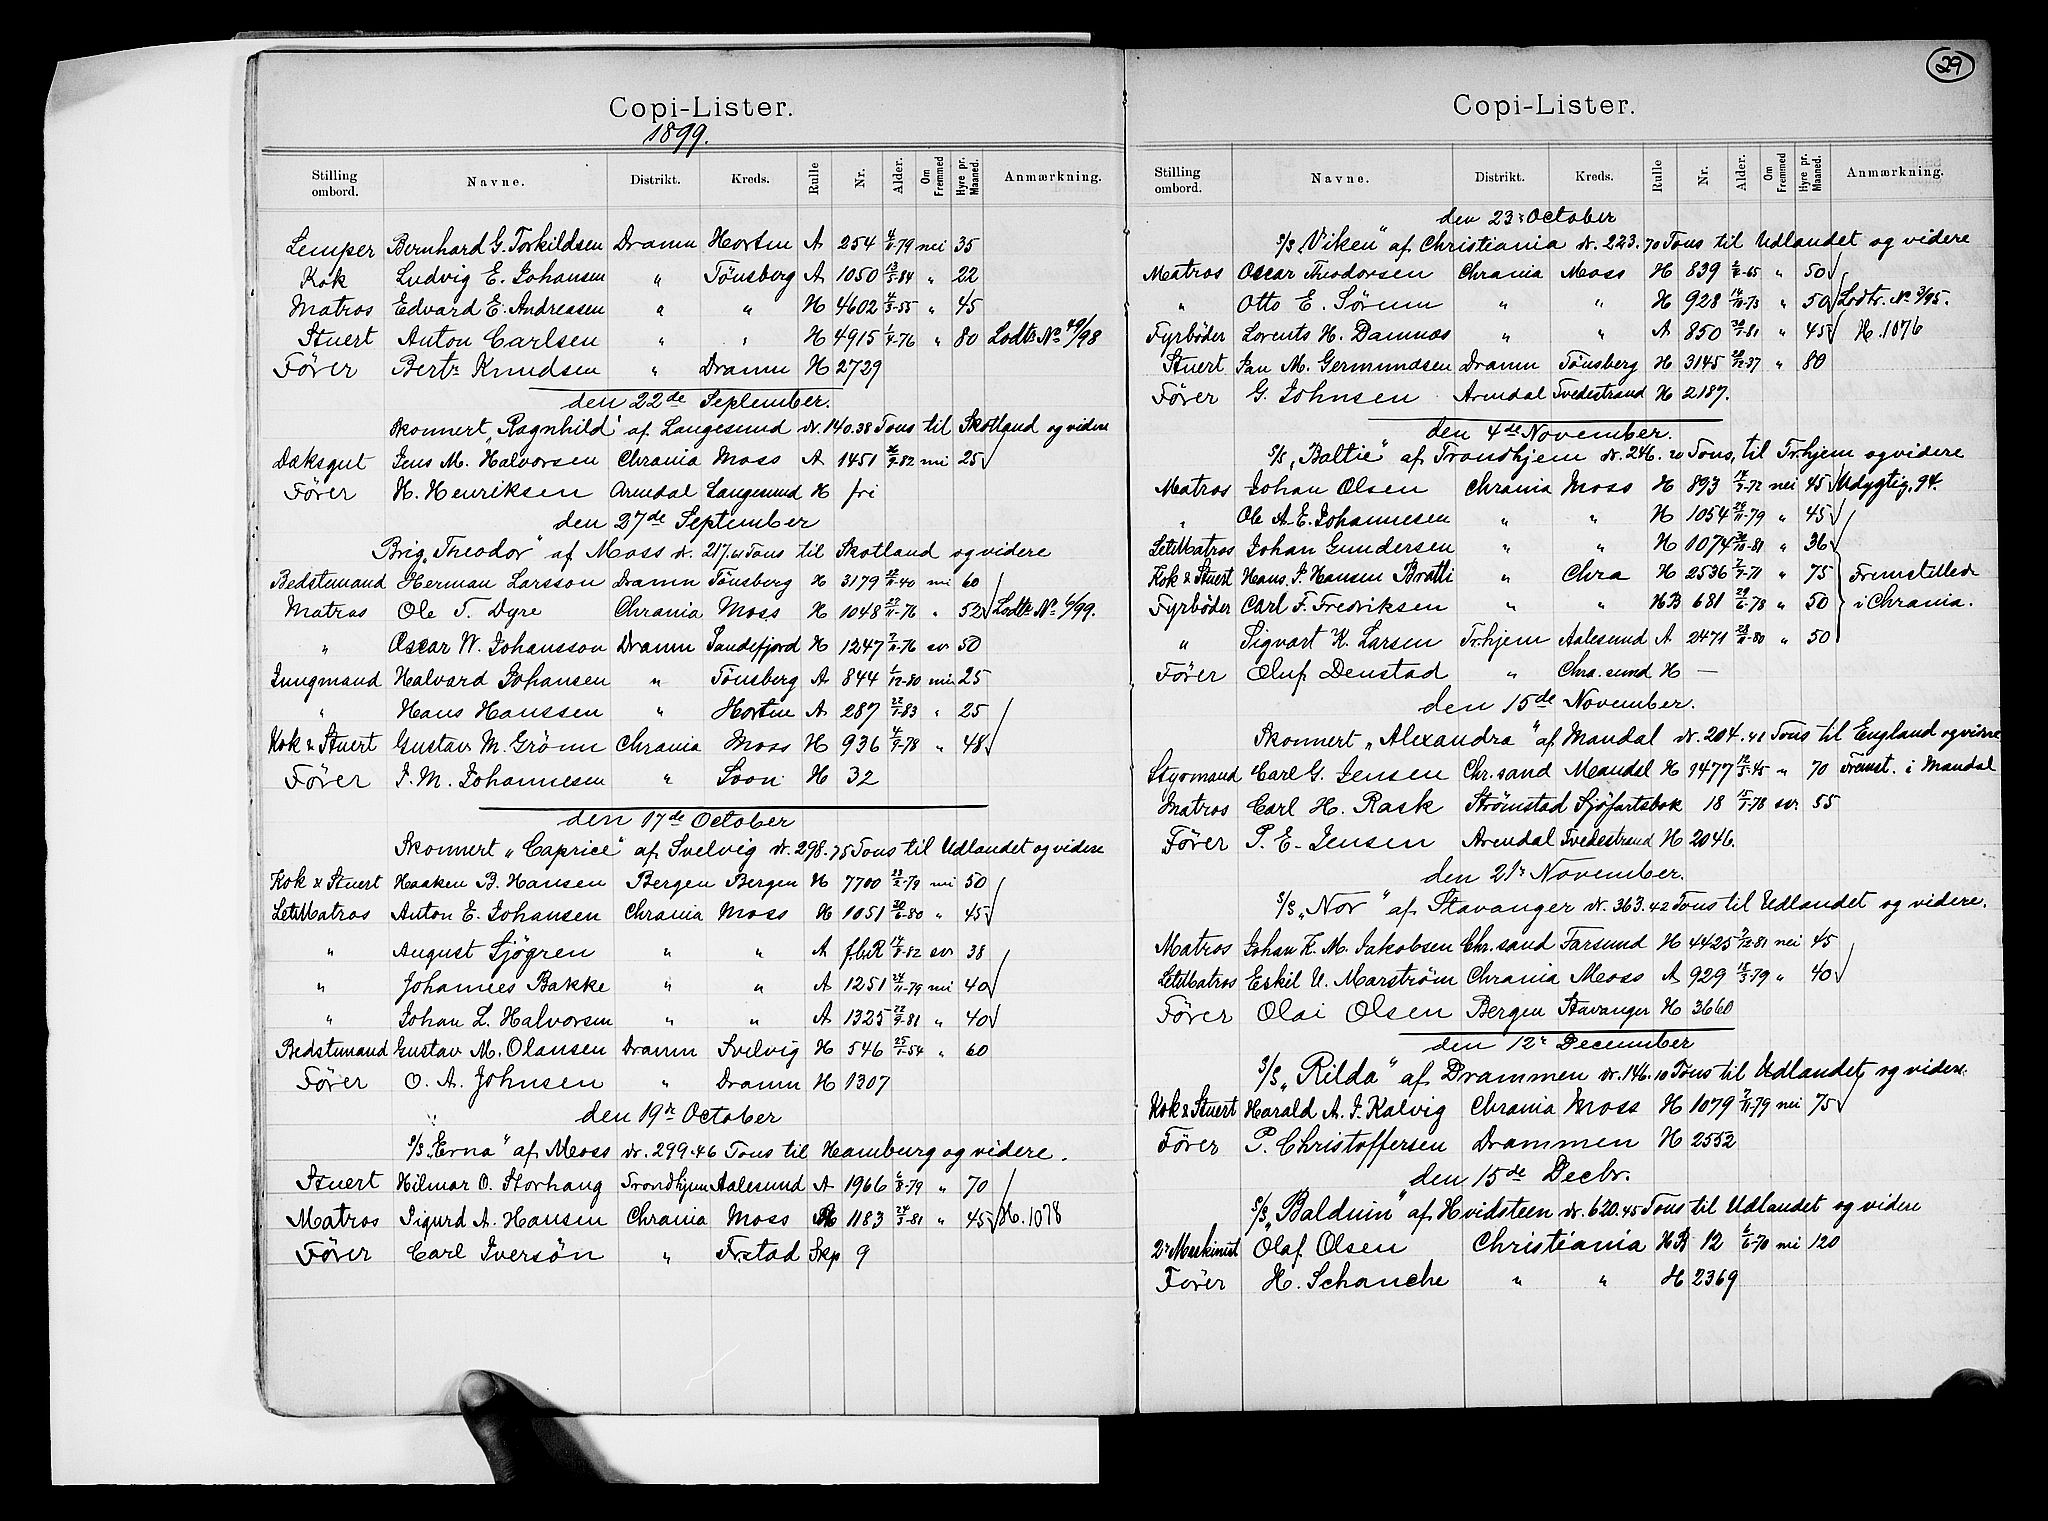 Copi-Lister.
1899.
Stilling ombord. Navne. Distrikt. Kreds. Rulle Nr. Alder. Om Fremmed Hyre pr. Maaned. Anmærkning.
Lemper Bernhard G. Torkildsen Dramn Horten A 254 4/11-79 nei 35
Kok Ludvig E. Johansen " Tönsberg A 1050 13/5-84 " 22
Matros Edvard E. Andreasen " " H 4602 4/3-55 " 45
Stuert Anton Carlsen " " H 4915 1/4-76 " 80 Lodts No 40/98
Förer Bertr Knudsen " Dramn H 2729
den 22de September.
Skonnert "Ragnhild" af Langesund dr. 140.38 Tons til Skotland og videre
Dæksgut Jens M. Halvorsen Chrania Moss A 1451 /9-82 nei 25
Förer H. Henriksen Arendal Langesund H fri
den 27de September
Brig "Theodor" af Moss dr. 217.61 Tons til Skotland og videre
Bedstemand Herman Larsson Dramn Tönsberg H 3179 12/11-40 nei 60
Matros Ole T. Dyre Chrania Moss H 1048 27/11-76 " 52 Lodts No 6/99.
" Oscar W. Johansson Dramn Sandefjord H 1247 7/11-76 sv 50
Jungmand Halvard Johansen " Tönsberg A 844 1/12-80 nei 25
" Hans Hanssen " Horten A 287 22/1-83 " 25
Kok & Stuert Gustav M. Grönn Chrania Moss H 936 4/9-78 " 48
Förer J. M. Johannesen " Soon H 32
den 17de October
Skonnert "Caprice" af Svelvig dr. 298.75 Tons til Udlandet og videre
Kok & Stuert Haaken B. Hansen Bergen Bergen H 7700 23/2-79 nei 50
LetMatros Anton E. Johansen Chrania Moss H 1051 30/6-80 " 45
" August Sjögren " " A f.b.R 14/8-82 sv 38
" Johannes Bakke " " A 1251 24/11-79 nei 40
" Johan L. Halvorsen " " A 1325 22/9-81 " 40
Bedstemand Gustav M. Olausen Dramn Svelvig H 546 25/1-54 " 60
Förer O. A. Johnsen " Dramn H 1307
den 19de October
S/S "Erna" af Moss dr. 299.46 Tons til Hamburg og videre.
Stuert Hilmar O. Storhaug Trondhjem Aalesund A 1966 6/8-79 " 70
Matros Sigurd A. Hansen Chrania Moss 1183 24/5-81 " 45 H. 1078
Förer Carl Iversön " Frstad Skp 9
29
Copi-Lister.
Stilling ombord. Navne. Distrikt. Kreds. Rulle Nr. Alder. Om Fremmed Hyre pr. Maaned. Anmærkning.
den 23r October
S/S "Viken" af Christiania dr. 223.70 Tons til Udlandet og videre
Matros Oscar Theodorsen Chrania Moss H 839 2/8-65 " 50
" Otto E. Sörum " " H 928 14/10-73 " 50 Lodts. No 3/95.
Fyrböder Lorents H. Damnæs " " A 850 20/1-81 " 45 H. 1076
Stuert Jan M. Germundsen Dramn Tönsberg H 3145 20/12-37 " 80
Förer G. Johnsen Arendal Tvedestrand H 2187.
den 4de November.
S/S "Baltic" af Trondhjem dr. 246.20 Tons, til Tr.hjem og videre
Matros Johan Olsen Chrania Moss H 893 17/9-72 nei 45 Udygtig. 94.
" Ole A. E. Johannesen " " H 1054 29/11-79 " 45
LetMatros Johan Gundersen " " H 1074 30/10-81 " 36
Kok & Stuert Hans J. Hansen Bratli " Chra H 2536 2/7-71 " 75 Fremstillede
Fyrböder Carl F. Fredriksen " " HB 681 29/6-78 " 50 i Chrania.
" Sigvart K. Larsen Tr.hjem Aalesund A 2471 28/11-80 " 50
Förer Oluf Denstad " Chra. sund H —
den 15de November.
Skonnert "Alexandra" af Mandal dr. 204.41 Tons til England og videre
Styrmand Carl G. Jensen Chr. sand Mandal H 1477 12/5-45 " 70 Fremst. i Mandal
Matros Carl H. Rask Strömstad Sjöfartsbok 18 15/1-78 sv. 55
Förer P. E. Jensen Arendal Tvedestrand H 2046.
den 21r November.
S/S "Nor" af Stavanger dr. 363.42 Tons til Udlandet og videre.
Matros Johan K. M. Jakobsen Chr. sand Farsund H 4425 9/12-81 nei 45
LetMatros Eskil U. Marström Chrania Moss A 929 18/3-79 " 40
Förer Olai Olsen Bergen Stavanger H 3660
den 12r December
S/S "Rilda" af Drammen dr. 146.10 Tons til Udlandet og videre.
Kok & Stuert Harald A. J. Kalvig Chrania Moss H 1079 9/11-79 nei 75
Förer P. Christoffersen Drammen H 2552
den 15de Decbr.
S/S "Balduin" af Hvidsteen dr. 620.45 Tons til Udlandet og videre
2r Maskinist Olaf Olsen Christiania HB 12 6/6-70 nei 120
Förer H. Schanche " " H 2369